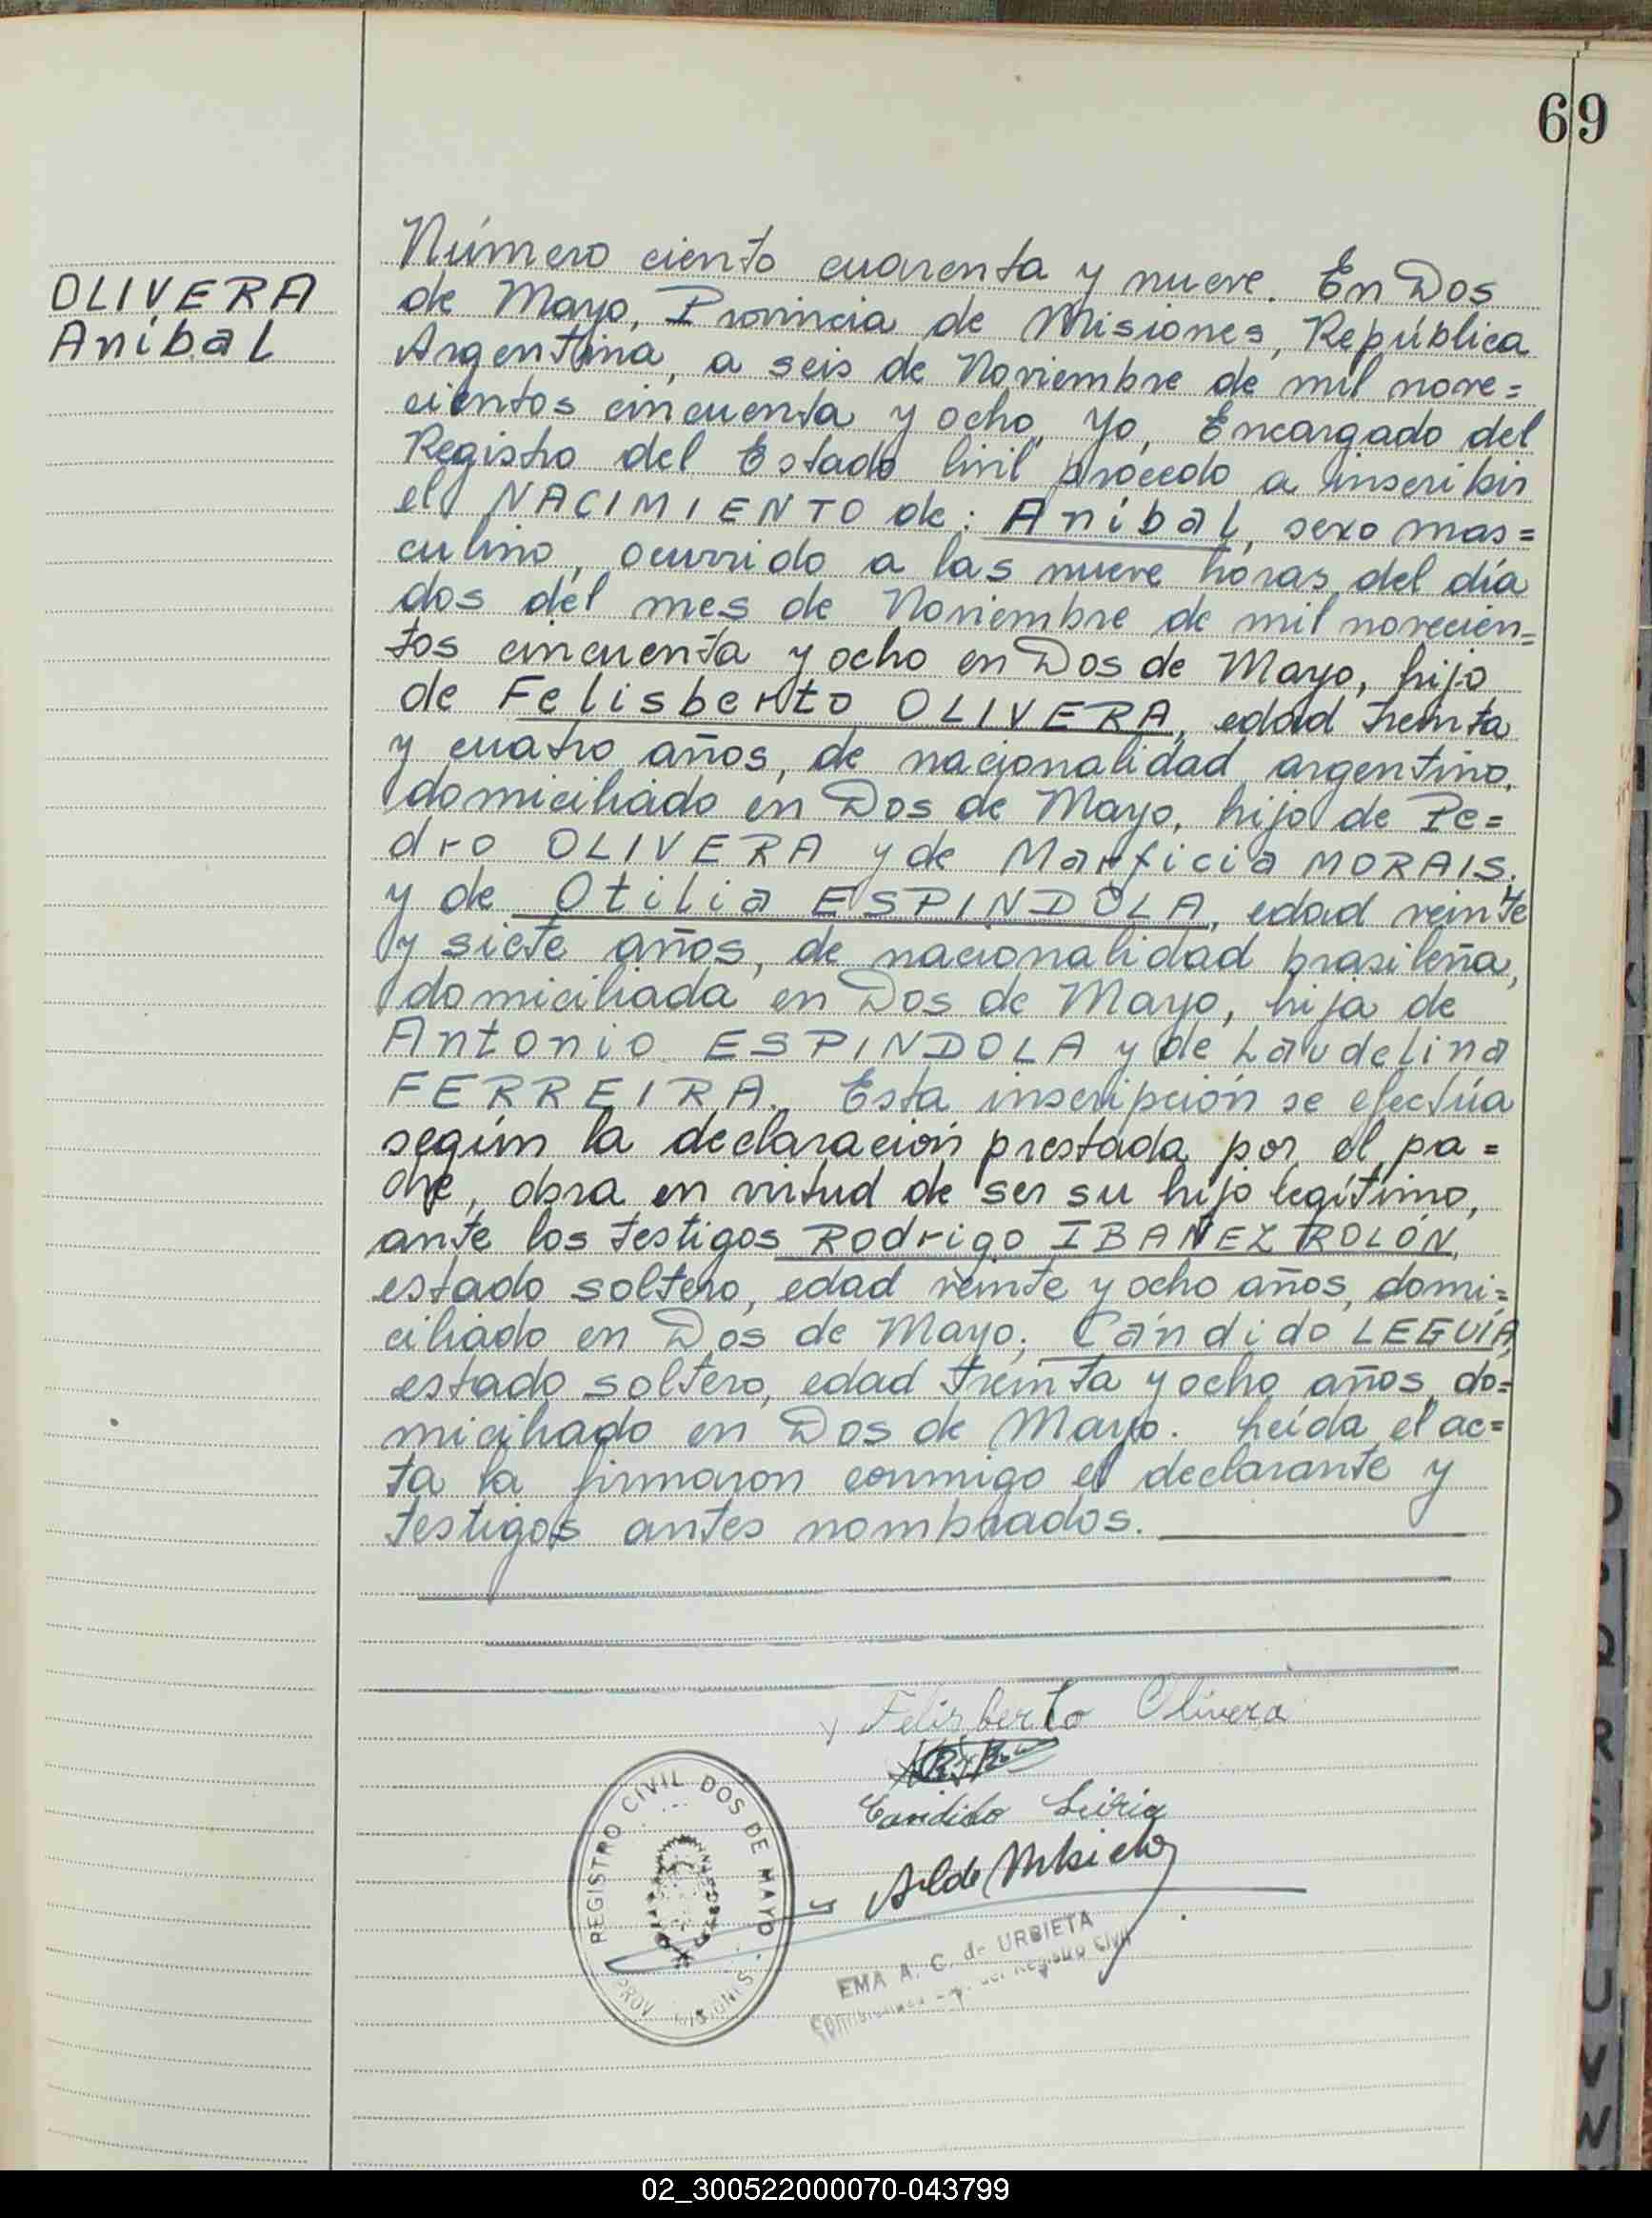 69
OLIVERA
Aníbal
Número ciento cuarenta y nueve. En Dos
de Mayo, Provincia de Misiones, República
Argentina, a seis de Noviembre de mil nove=
cientos cincuenta y ocho, Yo, Encargado del
Registro del Estado Civil procedo a inscribir
el NACIMIENTO de: Aníbal, sexo mas=
culino, ocurrido a las nueve horas del día
dos del mes de Noviembre de mil novecien=
tos cincuenta y ocho en Dos de Mayo, hijo
de Felisberto OLIVERA, edad treinta
y cuatro años, de nacionalidad argentino,
domiciliado en Dos de Mayo, hijo de Pe=
dro OLIVERA y de Marficia MORAIS.
y de Otilia ESPINDOLA, edad veinte
y siete años, de nacionalidad brasileña,
domiciliada en Dos de Mayo, hija de
Antonio ESPINDOLA y de Laudelina
FERREIRA. Esta inscripción se efectúa
según la declaración prestada por el pa=
dre, obra en virtud de ser su hijo legítimo,
ante los testigos Rodrigo IBAÑEZ ROLÓN,
estado soltero, edad veinte y ocho años, domi=
ciliado en Dos de Mayo; Cándido LEGUÍA,
estado soltero, edad treinta y ocho años, do=
miciliado en Dos de Mayo. Leída el ac=
ta la firmaron conmigo el declarante y
testigos antes nombrados.
Felisberto Olivera
Candido
REGISTRO CIVIL DOS DE MAYO
PROV. MISIONES
EMA A. C. de URBIETA
Registro Civil
R
T
U
V
02_300522000070-043799